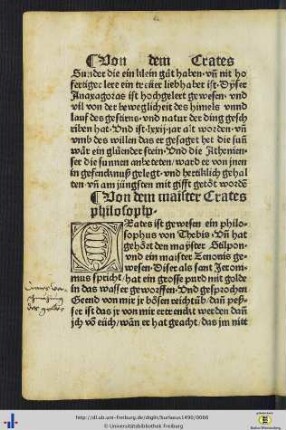 Von dem Crates
Sunder die ein klein gůt haben· vñ nit ho
fertiger lere ein trewer liebhaber ist· Diser
Anaxagoras ist hochgelert gewesen· vnd
vil von der beweglicheit des himels vnnd
lauf des gestirns· vnd natur der ding gesch
riben hat· Vnd ist lxxij iar alt worden· vñ
vmb des willen das er gesaget het die suñ
wär ein glüender stein· Vnd die Athenien-
ser die sunnen anbeteten· ward er von jnen
in gefencknuß gelegt· vnd herttklich gehal
ten· vñ am jüngsten mit gifft getöt wordē
Von dem maister Crates
philosophy·
CRates ist gewesen ein philo-
sophus von Thebis· Vñ hat
gehört den mayster Stilpon·
vnd ein maister Zenonis ge-
wesen· Diser als sant Jeroni-
mus spricht· hat ein grosse purd mit golde
in das wasser geworffen· Vnd gesprochen
Geend von mir jr bösen reichtüm· dañ peß-
ser ist das jr von mir ertrenckt werden dañ
ich võ eüch· wañ er hat geacht· das jm nitt
der
http://dl.ub.uni-freiburg.de/diglit/burlaeus1490/0068
© Universitätsbibliothek Freiburg